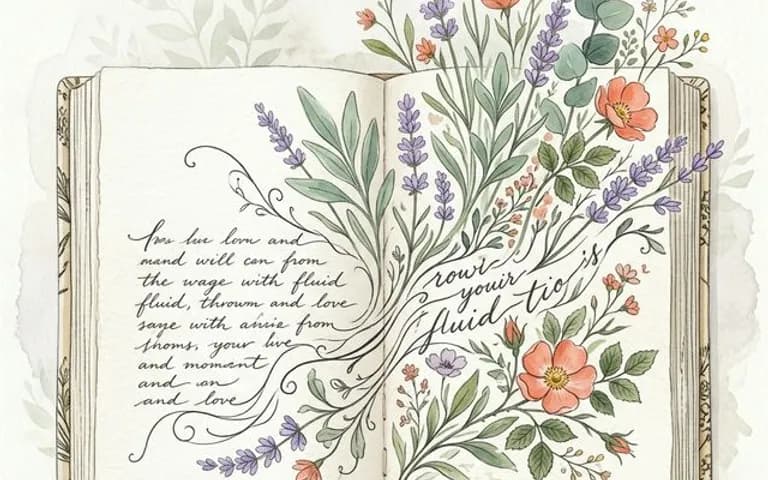 live love and
mand will can from
the wage with fluid
fluid, thrown and love
saye with from
your live
and moment
and an
and love
rowr
youir
fluid tio is